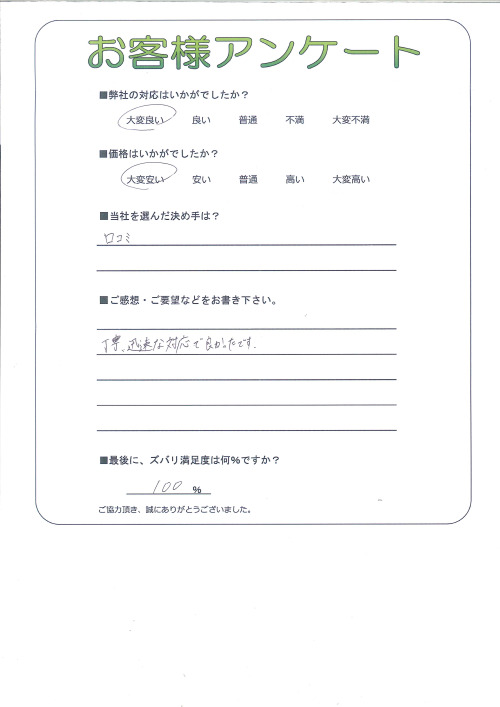 お客様アンケート
■弊社の対応はいかがでしたか？
大変良い 良い 普通 不満 大変不満
■価格はいかがでしたか？
大変安い 安い 普通 高い 大変高い
■当社を選んだ決め手は？
口コミ
■ご感想・ご要望などをお書き下さい。
丁寧、迅速な対応で良かったです。
■最後に、ズバリ満足度は何%ですか？
100 %
ご協力頂き、誠にありがとうございました。